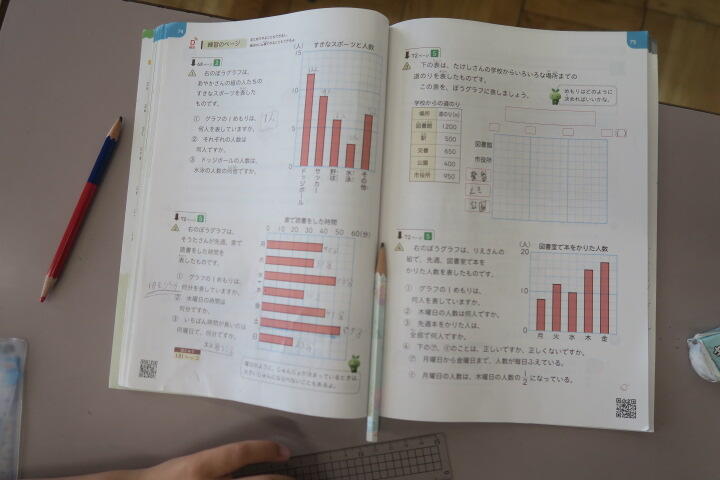 74
練習のページ
すきなスポーツと人数
(人)
15
10
5
0
ドッジボール
サッカー
野球
水泳
その他
68ページ 3
右のぼうグラフは、
あやかさんの組の人たちの
すきなスポーツを表した
ものです。
① グラフの1めもりは、
何人を表していますか。
② それぞれの人数は
何人ですか。
③ ドッジボールの人数は、
水泳の人数の何倍ですか。
1人
72ページ 5
右のぼうグラフは、
そうたさんが先週、家で
読書をした時間を
表したものです。
① グラフの1めもりは、
何分を表していますか。
② 水曜日の時間は
何分ですか。
③ いちばん時間が長いのは
何曜日で、何分ですか。
家で読書をした時間
0 10 20 30 40 50 60(分)
月
火
水
木
金
土
日
75
72ページ 6
下の表は、たけしさんの学校からいろいろな場所までの
道のりを表したものです。
この表を、ぼうグラフに表しましょう。
めもりはどのように
決めればいいかな。
学校からの道のり
場所 道のり(m)
図書館 1200
駅 500
交番 650
公園 400
市役所 950
図書館
市役所
72ページ 5
右のぼうグラフは、りえさんの
組で、先週、図書室で本を
かりた人数を表したものです。
① グラフの1めもりは、
何人を表していますか。
② 木曜日の人数は何人ですか。
③ 先週本をかりた人は、
全部で何人ですか。
④ 下の㋐、㋑のことは、正しいですか、正しくないですか。
㋐ 月曜日から金曜日まで、人数が毎日ふえている。
㋑ 月曜日の人数は、木曜日の人数の1/2になっている。
図書室で本をかりた人数
(人)
20
10
0
月 火 水 木 金